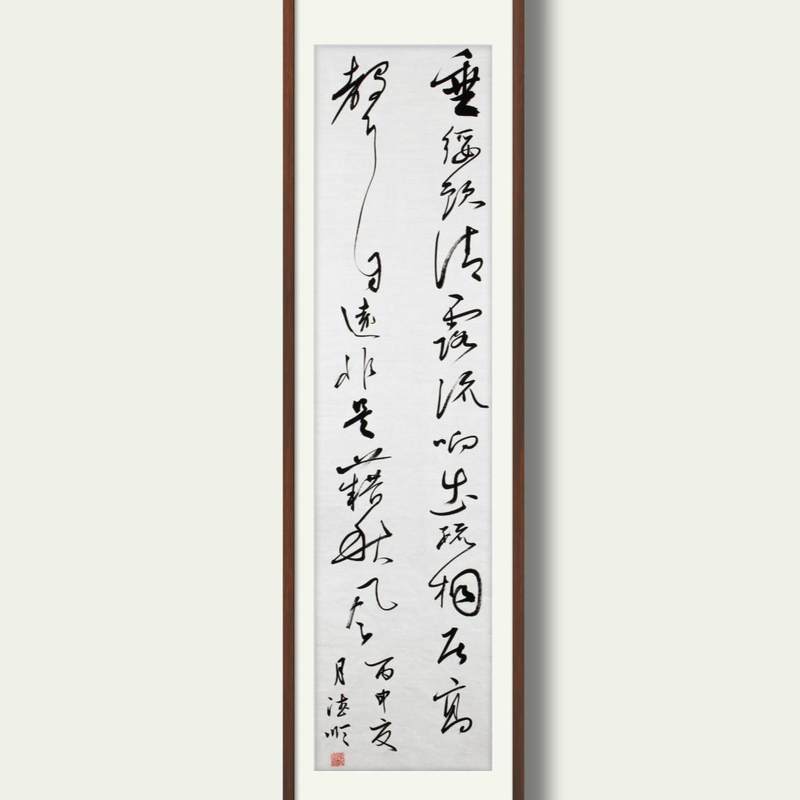 垂緌飲清露流响出疏桐居高
聲自遠非是藉秋風
丙申夏
月德順